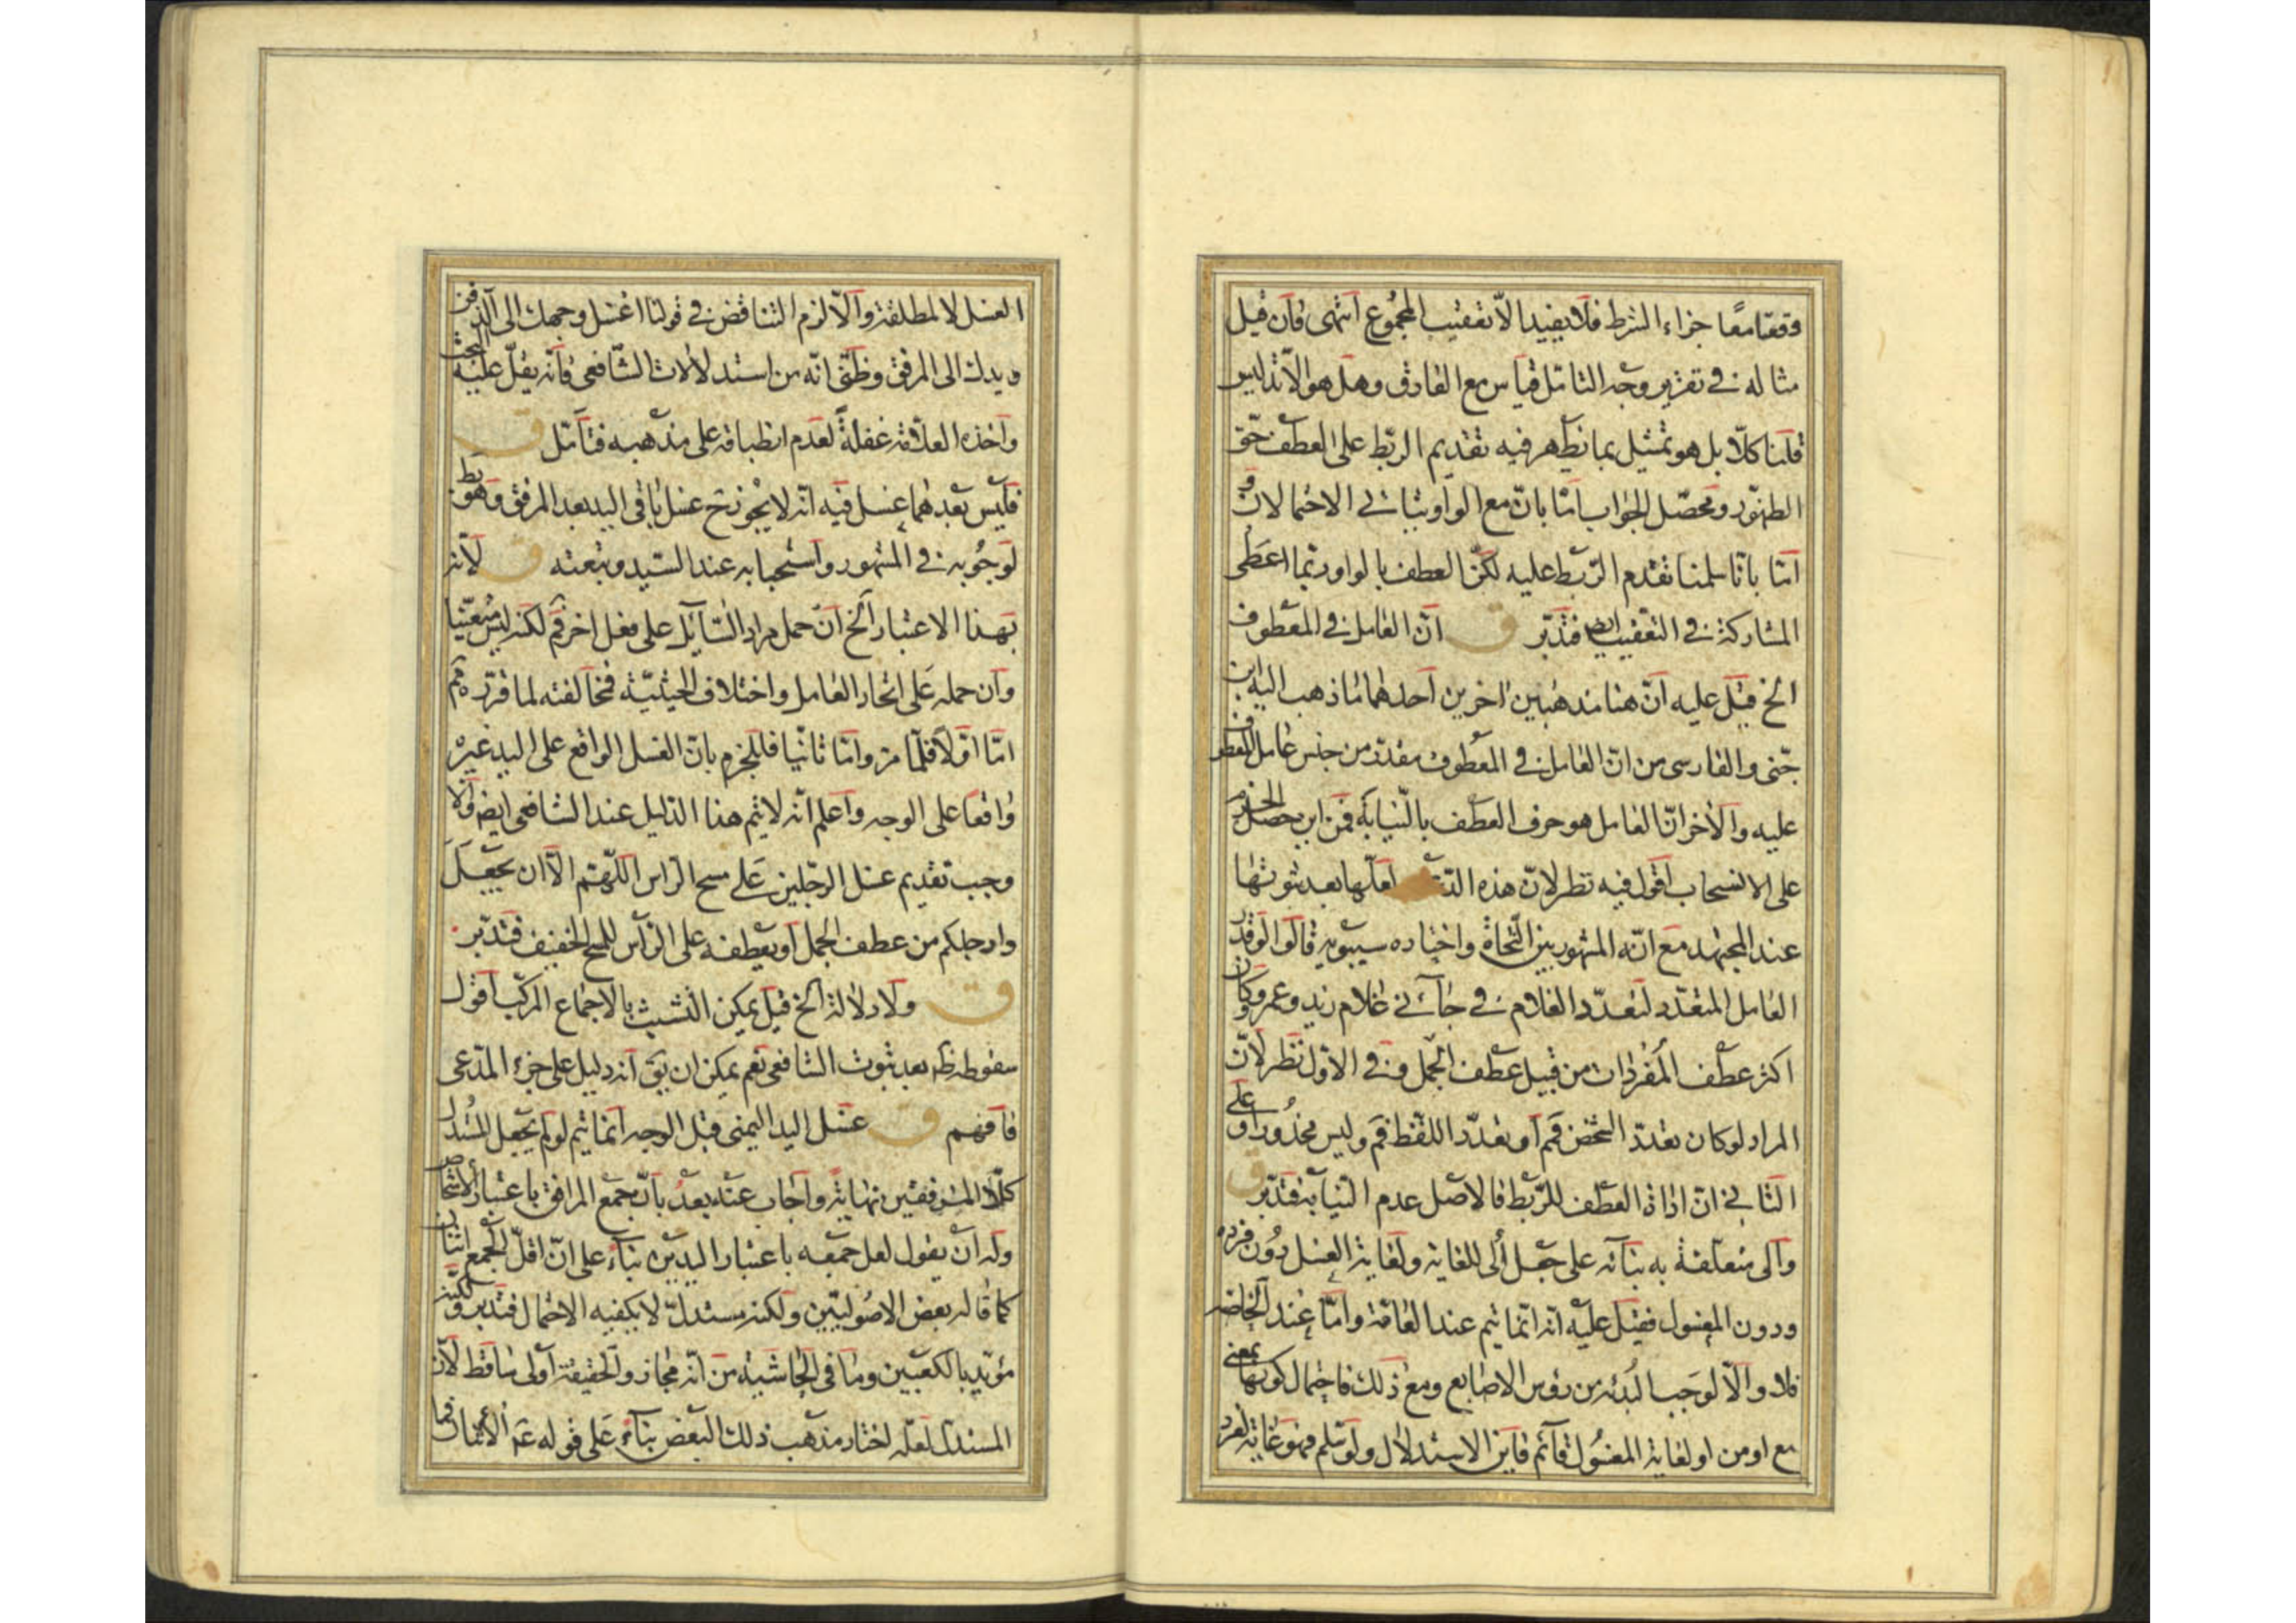 وقعتا معًا جزاء الشرط فلا يفيد الّا تعقيب المجموع انتهى فان قيل
مثاله في تقرير وجه التامّل قياس مع الفارق وهل هو الّا تدليس
قلنا كلّا بل هو تمثيل بما يظهر فيه تقديم الربط على العطف حقّ
الظهور ومحصّل الجواب امّا بانّ مع الواو يتاتى الاحتمالان و
امّا بانّا سلمنا تقدم الرّبط عليه لكنّ العطف بالواو ربّما اعطى
المشاركة في التعقيب ايض فتدبّر ق انّ العامل في المعطوف
الخ قيل عليه انّ هنا مذهبين اخرين احدهما ما ذهب اليه ابن
جنّى والفارسى من انّ العامل في المعطوف مقدّر من جنس عامل المعطوف
عليه والاخر انّ العامل هو حرف العطف بالنّيابة فمن اين حصل الجزم
على الانسحاب اقول فيه نظر لانّ هذه لعلّها بعد ثبوتها
عند المجتهد مع انّه المشهور بين النّحاة واختاره سيبويه قالوا لو قدّر
العامل المتعدّد لتعدّد الغلام في جائنى غلام زيد وعمرو وكان
اكثر عطف المفردات من قبيل عطف الجمل وفى الاوّل نظر لانّ
المراد لو كان تعدّد الشخص فمم او تعدّد اللفظ فمم وليس محذورا وعلى
الثانى انّ اداة العطف للرّبط فالاصل عدم النيابة فتدبّر ق
والى متعلّقة به بنائه على جعل الى للغاية ولغاية الغسل دون فرده
ودون المغسول فقيل عليه انّه انّما يتم عند العامّة وامّا عند الخاصّة
فلا والّا لوجب البدئة من رؤس الاصابع ومع ذلك فاحتمال كونها بمعنى
مع او من او لغاية المغسول قائم فاين الاستدلال ولو سلم فهو غاية لفرد
الغسل لا لمطلقة والّا لزم التناقض في قولنا اغسل وجهك الى الذقن
ويدك الى المرفق وظنّى انّه من استدلالات الشّافعى فانّه يقلّ عليه البحث
واخذه العلّامة غفلة لعدم انطباقه على مذهبه فتامّل ق
فليس بعدهما غسل فيه انّه لا يجوز ح غسل باقى اليد بعد المرفق وهو بط
لوجوبه في المشهور واستحبابه عند السّيد ومتبعته ق لانّه
بهذا الاعتبار الخ ان حمل مراد السّايل على فعل اخر فمم لكنه ليس متعيّنا
وان حمله على اتحاد العامل واختلاف الحيثيّة فمخالفته لما قرّره مم
امّا اوّلا فلما مرّ وامّا ثانيا فللجزم بانّ الغسل الواقع على اليد غيره
واقعا على الوجه واعلم انّه لا يتم هذا الدّليل عند الشافعى ايض والّا
وجب تقديم غسل الرّجلين على مسح الرّاس اللّهمّ الّا ان يجعل
وارجلكم من عطف الجمل او يعطفه على الرّاس للمسح الخفيف فتدبّر
ق ولا دلالة الخ قيل يمكن التّشبث بالاجماع المركّب اقول
سقوطه ظ بعد ثبوت الشافعى نعم يمكن ان يق انّه دليل على جزء المدّعى
فافهم ق غسل اليد اليمنى قبل الوجه انّما يتم لو لم يجعل المستدل
كلّا المرفقين نهاية واجاب عنه بعد بانّ جمع المرافق باعتبار الاشخاص
وله ان يقول لعل جمعه باعتبار اليدين بناء على انّ اقلّ الجمع اثنان
كما قاله بعض الاصوليّين ولكنّه مستدلّ لا يكفيه الاحتمال فتدبر ولكنّه
مؤيّد بالكعبين وما فى الحاشية من انّه مجاز والحقيقة اولى ساقط لانّ
المستدلّ لعلّه اختار مذهب ذلك البعض بناء على قوله عم الاثنان فما